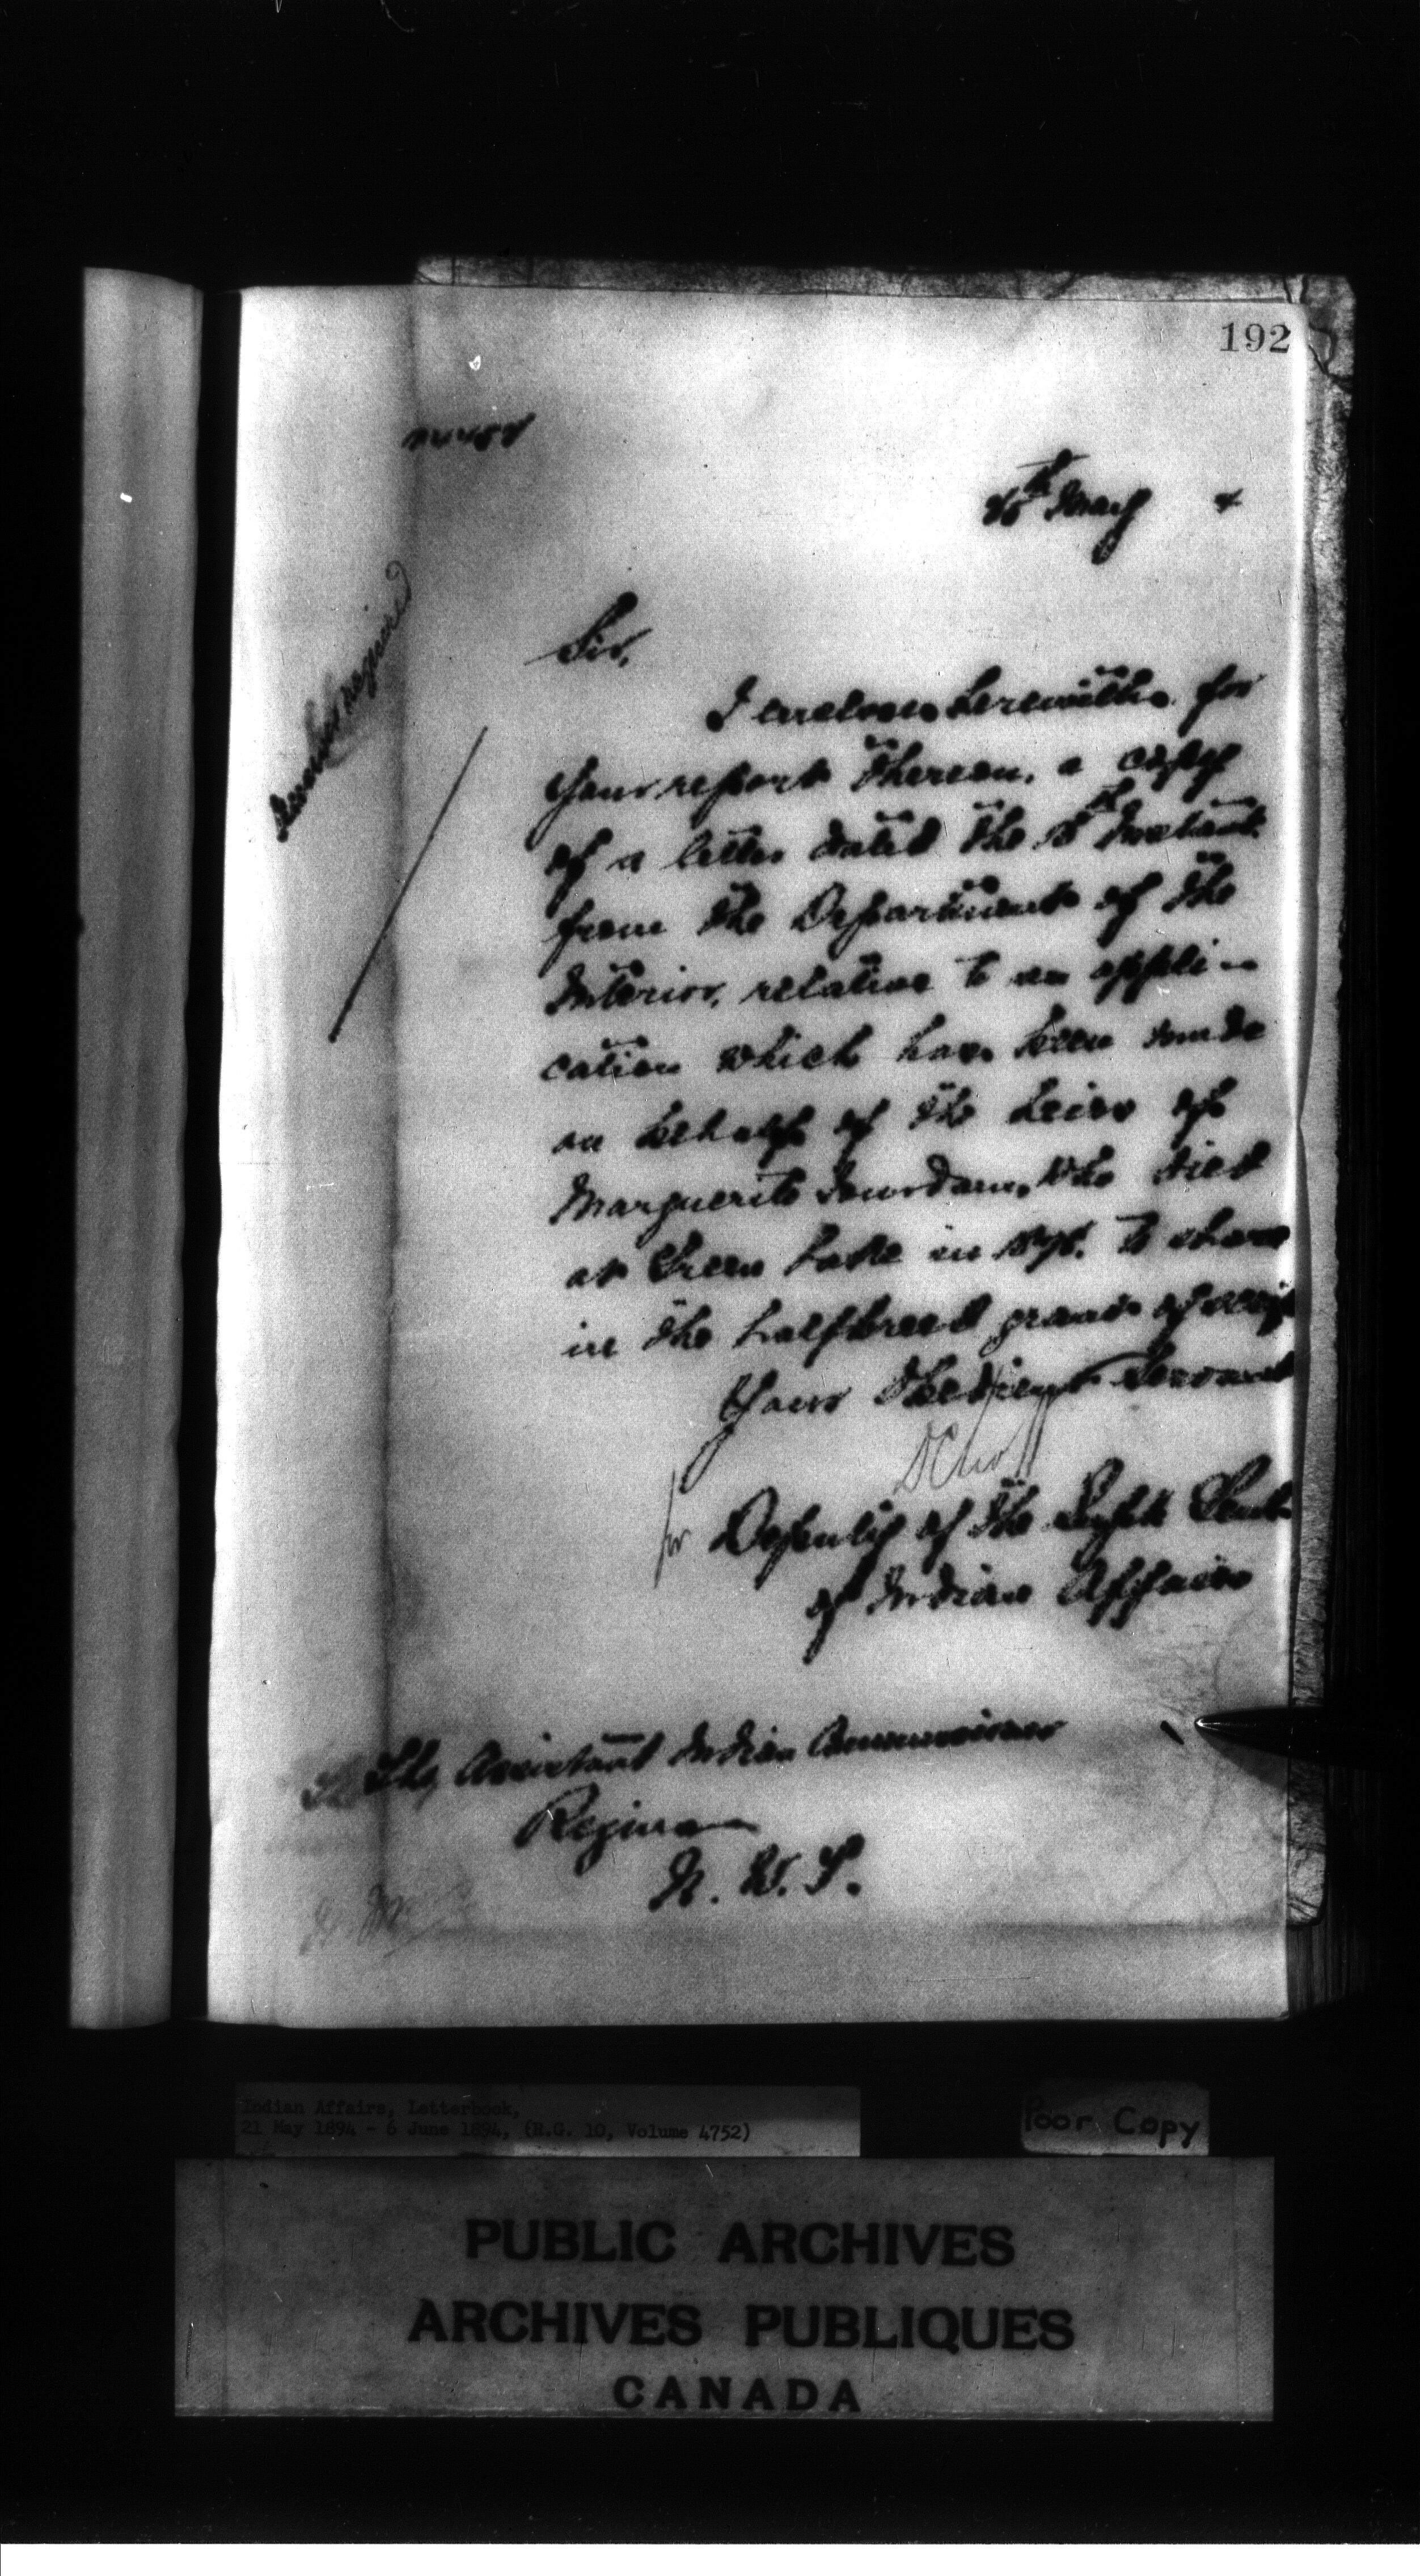 192
May 4
Sir,
I enclose herewith for
your report thereon, a copy
of a letter dated the Instant
from the Department of the
Interior, relative to an appli-
cation which has been made
on behalf of the heirs of
Marguerite who died
at Green Lake in to share
in the halfbreed grant of scrip
Your Obedient Servant
for Deputy of the Supt. Genl.
of Indian Affairs
The Assistant Indian Commissioner
Regina
N. W. T.
Indian Affairs, Letterbook,
21 May 1894 - 6 June 1894, (R.G. 10, Volume 4752)
Poor Copy
PUBLIC ARCHIVES
ARCHIVES PUBLIQUES
CANADA